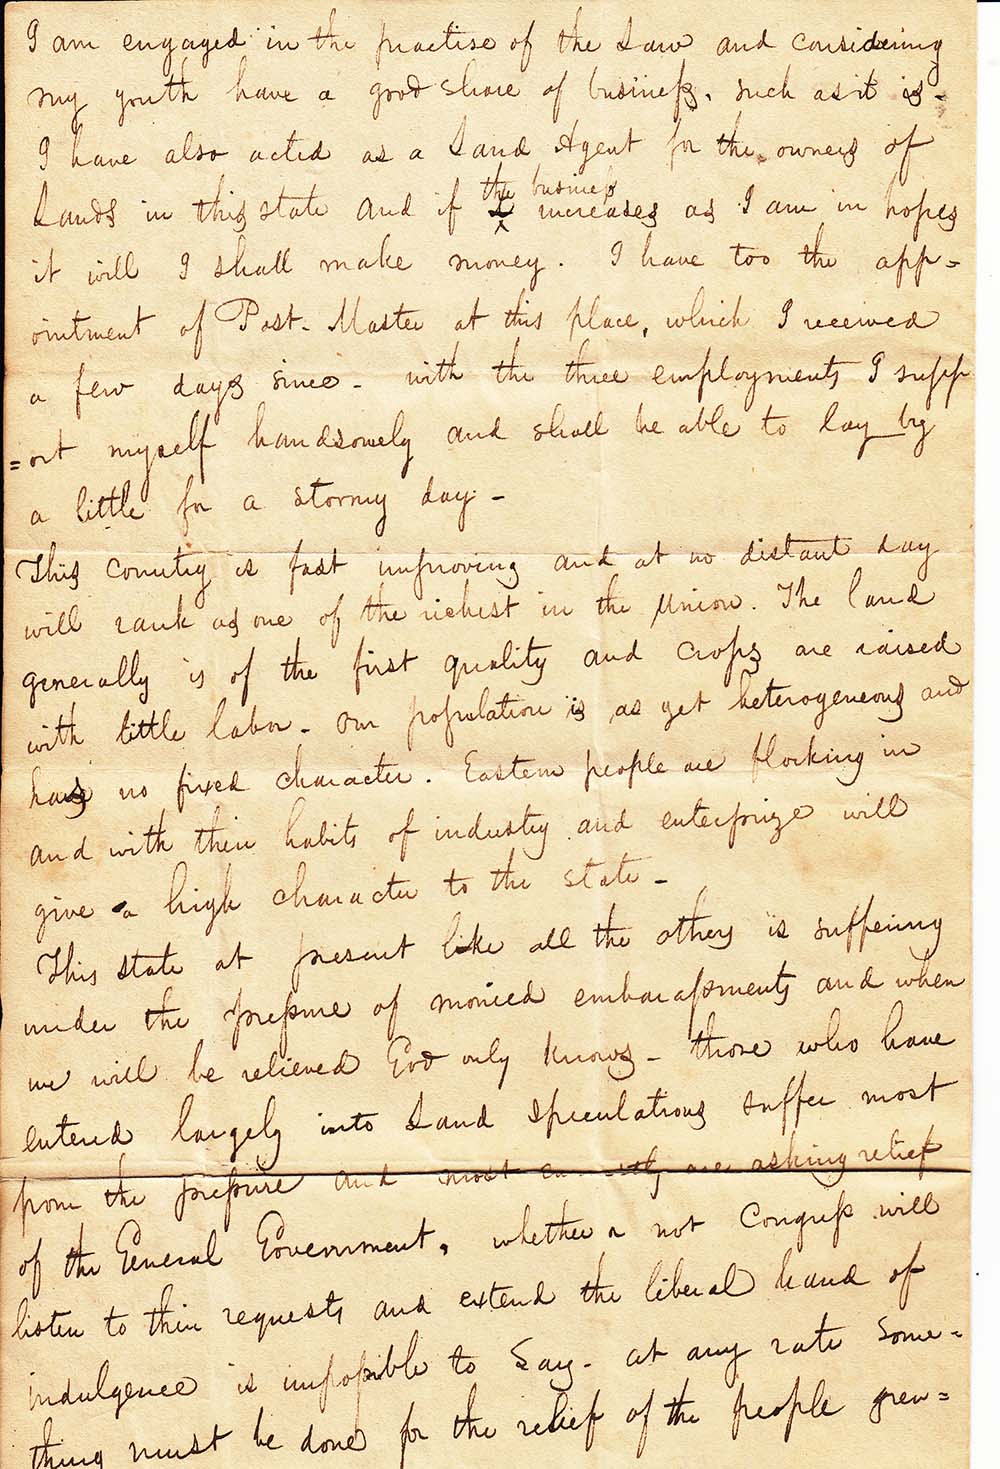 I am engaged in the practise of the Law and considering
my youth have a good share of business, such as it is -
I have also acted as a Land Agent for the owners of
Lands in this state and if the business increases as I am in hopes
it will I shall make money. I have too the app=
ointment of Post-Master at this place, which I received
a few days since - with the three employments I supp
=ort myself handsomely and shall be able to lay by
a little for a stormy day -
This Country is fast improving and at no distant day
will rank as one of the richest in the Union. The land
generally is of the first quality and crops are raised
with little labor - Our population is as yet heterogeneous and
has no fixed character. Eastern people are flocking in
and with their habits of industry and enterprize will
give a high character to the state -
This state at present like all the others is suffering
under the pressure of monied embarassments and when
we will be relieved God only knows - those who have
entered largely into Land Speculations suffer most
from the pressure and most are asking relief
of the General Government, whether or not Congress will
listen to their requests and extend the liberal hand of
indulgence is impossible to say - at any rate some=
thing must be done for the relief of the people grow=